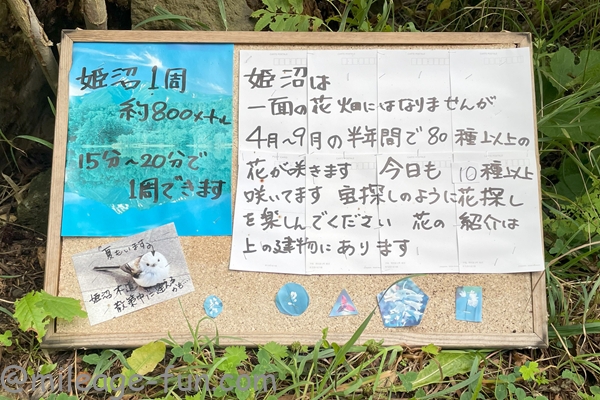 姫沼1周
約800メートル
15分～20分で
1周できます
姫沼は
一面の花畑にはなりませんが
4月～9月の半年間で80種以上の
花が咲きます 今日も10種以上
咲いてます 宝探しのように花探し
を楽しんでください 花の紹介は
上の建物にあります
夏もいますの
姫沼
散策中に逢えるかも…